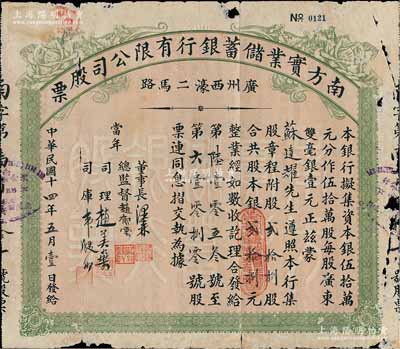 No 0121
南方實業儲蓄銀行有限公司股票
廣州西濠二馬路
本銀行擬集資本銀伍拾萬
元分作伍拾萬股每股廣東
雙毫銀壹元正茲蒙
蘇道耀先生遵照本行集
股章程附股貳拾捌股
合共股本銀貳拾捌元
整業經如數收訖理合發給
第陸壹零零五叁號至
第六壹零零捌零號股
票連同息摺交執為據
當年
董事長
總監督
司理
司庫
中華民國十四年五月壹日發給